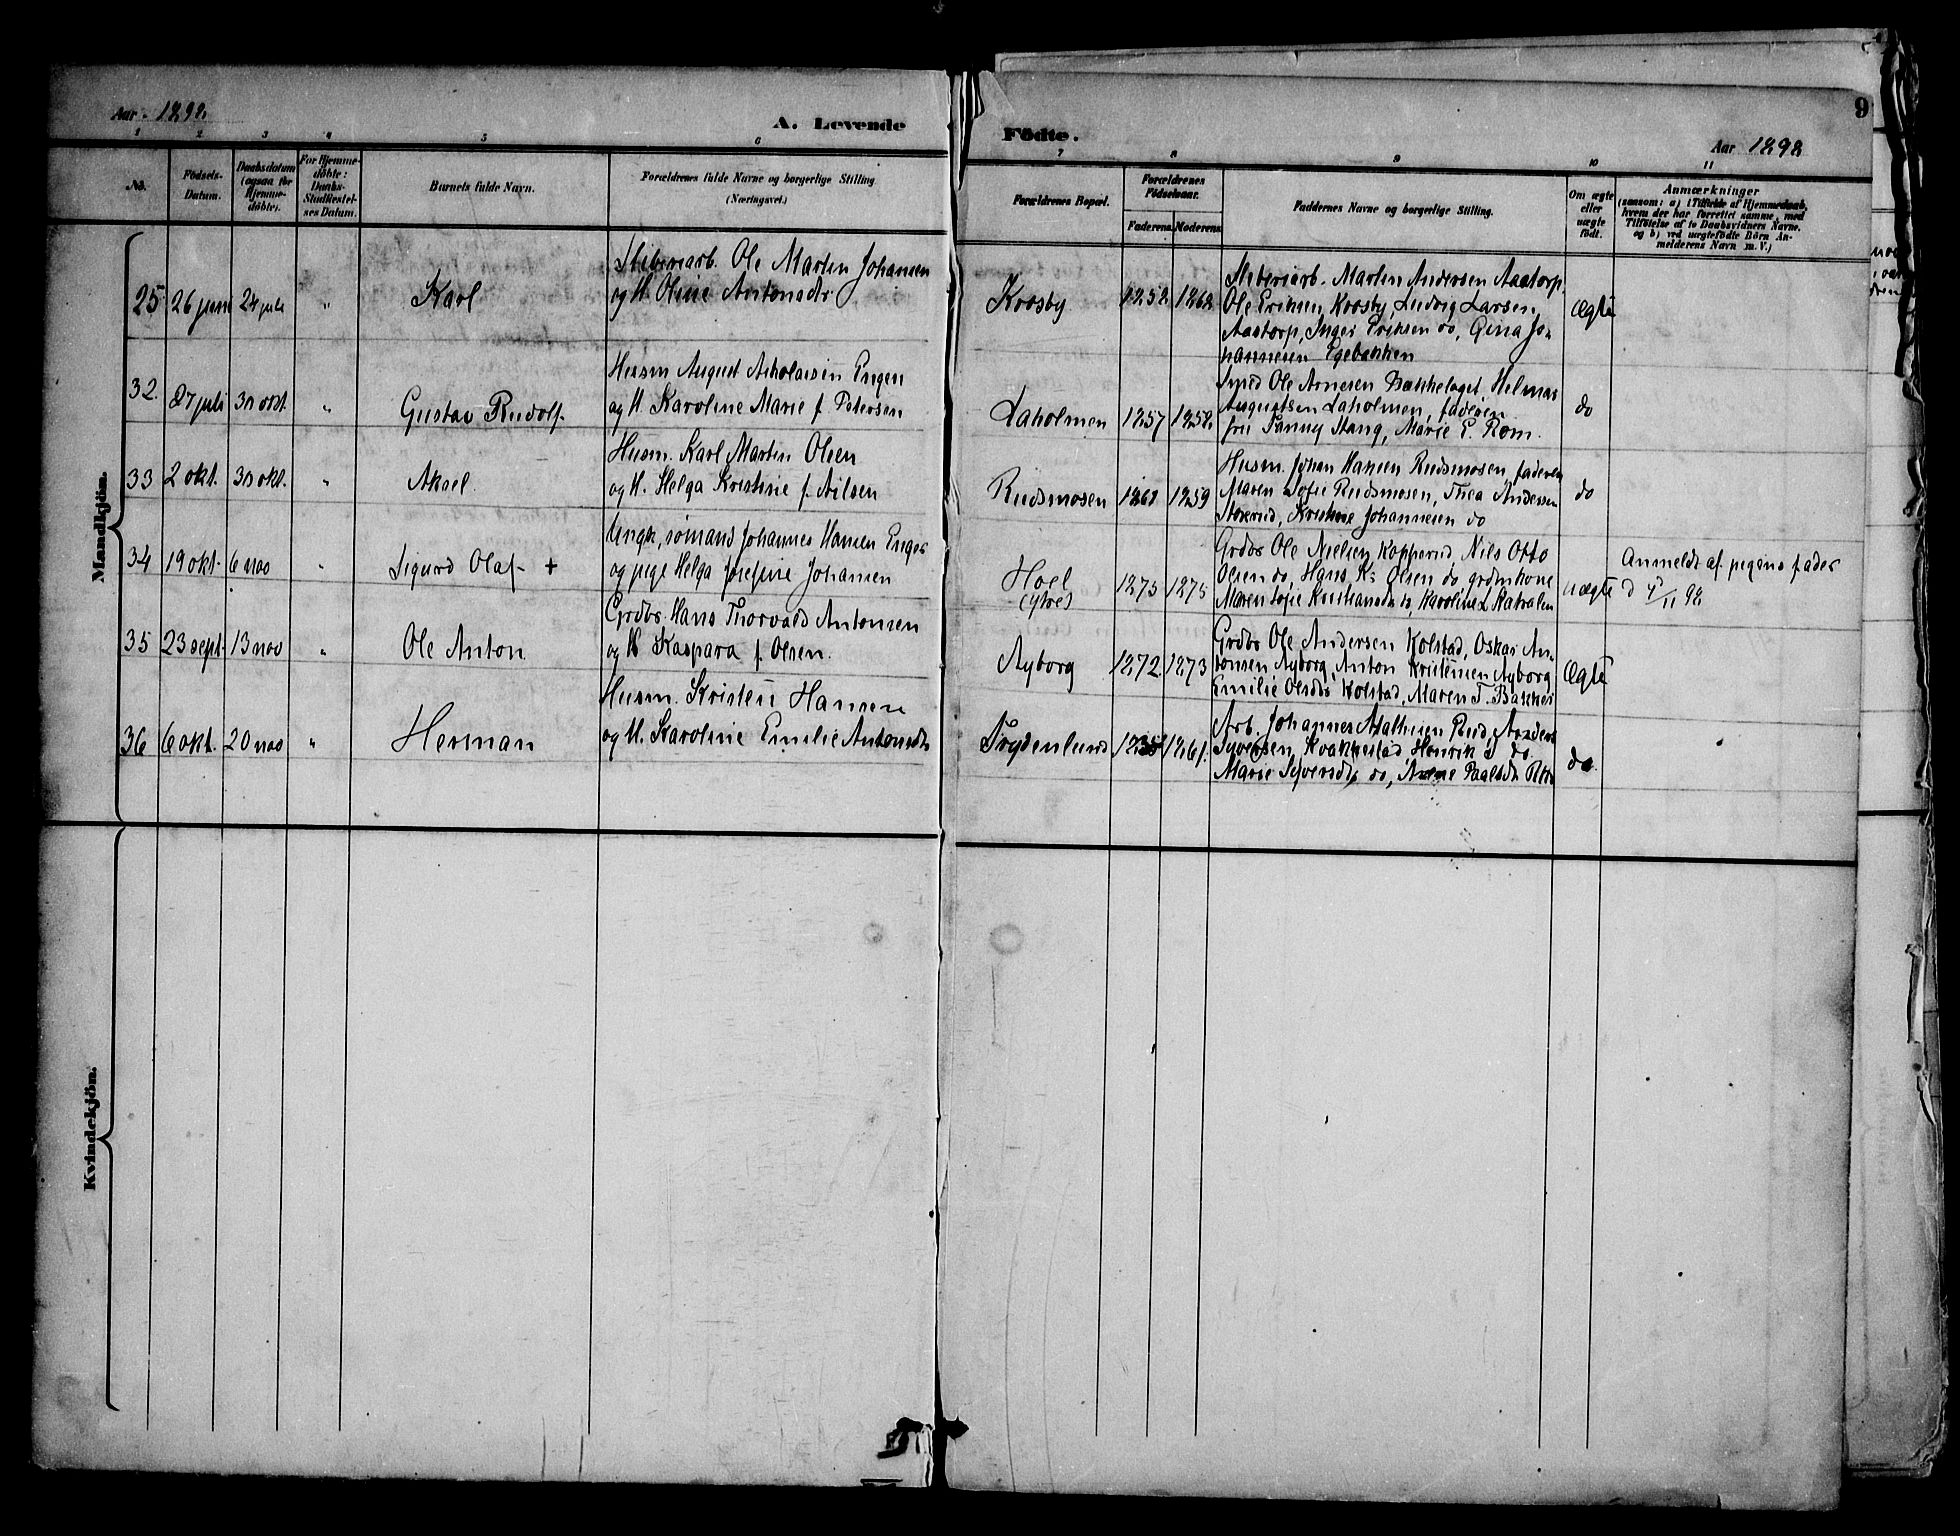 Aar 1898.
A. Levende
Födte.
Aar 1898
9
1 2 3 4 5 6
7 8 9 10 11
No.
Födsels-
Datum.
Daabsdatum
(ogsaa for
Hjemme-
döbte).
For Hjemme-
döbte:
Daabs-
Stadfæstel-
ses Datum.
Barnets fulde Navn.
Forældrenes fulde Navne og borgerlige Stilling
(Næringsvei.)
Forældrenes Bopæl.
Forældrenes
Födselsaar.
Faderens. Moderens.
Faddernes Navne og borgerlige Stilling.
Om ægte
eller
uægte
født.
Anmærkninger
(saasom: a) i Tilfælde af Hjemmedaab,
hvem der har forrettet samme, med
Tilföielse af to Daabsvidners Navne.
og b) ved uægtefödte Börn An-
melderens Navn m. V.)
Mandkjön.
25 26 juni 24 juli " Karl
Sliberiarb. Ole Martin Johansen
og H. Oline Antonsdtr
Krosby 1858 1868
Sliberiarb. Martin Andersen Aastorp,
Ole Eriksen Krosby, Ludvig Larsen
Aastorp, Inger Eriksen do, Gina Jo-
hannesen Egebakken
Ægte
32. 27 juli 30 okt. " Gustav Rudolf.
Husm August Engen
og H. Karoline Marie f. Petersen
Laholmen 1857 1858.
Smed Ole Arnesen Bakkelaget, Helmar
Augustsen Laholmen, faderen
fru Fanny Stang, Marie E. Rom.
do
33 2 okt. 30 okt. " Aksel.
Husm. Karl Martin Olsen
og H. Helga Kristine f. Nilsen
Rudsmosen 1861 1859
Husm. Johan Hansen Rudsmosen, faderen
Maren Sofie Rudsmosen, Thea Andersen
Kristine Johannesen do
do
34 19 okt. 6 nov " Sigurd Olaf +
Ungk, sømand Johannes Hansen Enger
og pige Helga Josefine Johansen
Hoel
(ytre)
1875 1875
Grdbr Ole Nielsen Kopperud, Nils Otto
Olsen do, Hans K. Olsen do, grdmkone
Maren Sofie Kristiansdtr do, Karoline
uægte
Anmeldt af pigens fader
d 4/11 98
35 23 sept. 13 nov " Ole Anton
Grdbr. Hans Thorvald Antonsen
og H Kaspara f. Olsen.
Nyborg 1872 1873
Grdbr Ole Andersen Kolstad, Oskar An-
tonsen Nyborg, Anton Kristensen Nyborg
Emilie Olsdtr Kolstad, Maren T. Bakker
Ægte
36 6 okt. 20 nov " Herman
Husm. Kristen Hansen
og H. Karoline Emilie Antonsdtr
Frydenlund 1861.
Arb. Johannes Mathisen Rud, Anders
Syversen, Krakkestad, Henrik S do
Marie Syversdtr do, Anne Paalsdtr
do.
Kvindekjön.